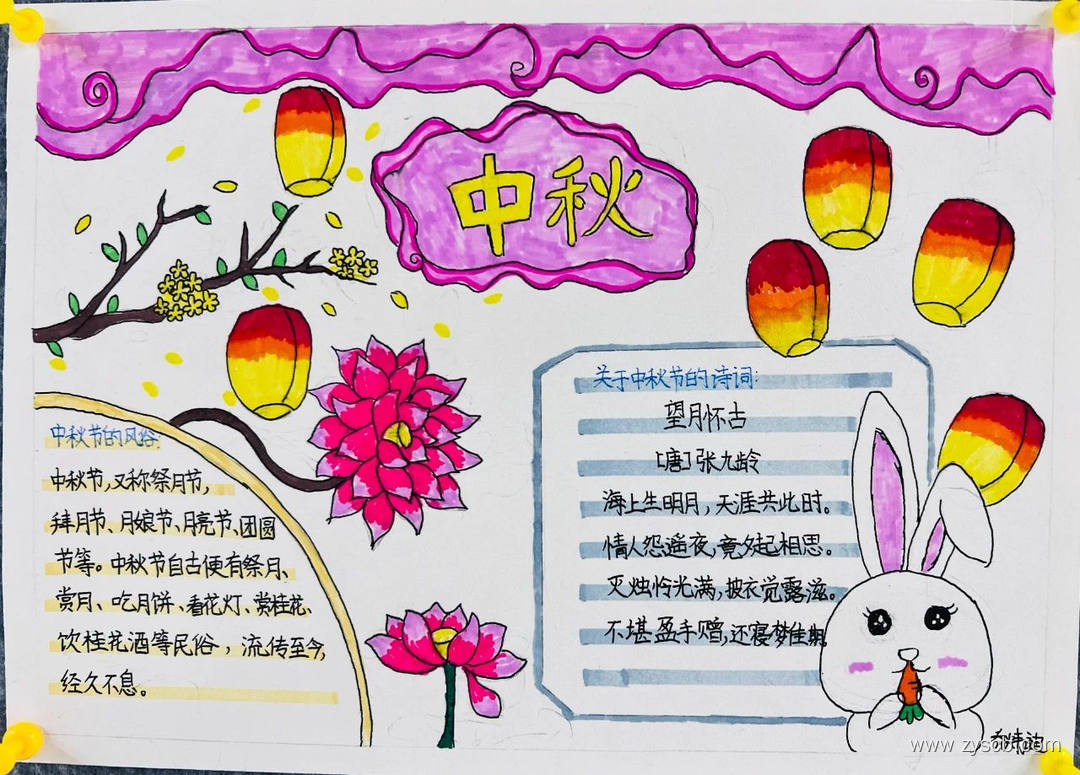 中秋
中秋节的风俗:
中秋节,又称祭月节,
拜月节、月娘节、月亮节、团圆
节等。中秋节自古便有祭月、
赏月、吃月饼、看花灯、赏桂花、
饮桂花酒等民俗，流传至今，
经久不息。
关于中秋节的诗词:
望月怀古
[唐]张九龄
海上生明月，天涯共此时。
情人怨遥夜,竟夕起相思。
灭烛怜光满,披衣觉露滋。
不堪盈手赠,还寝梦佳期